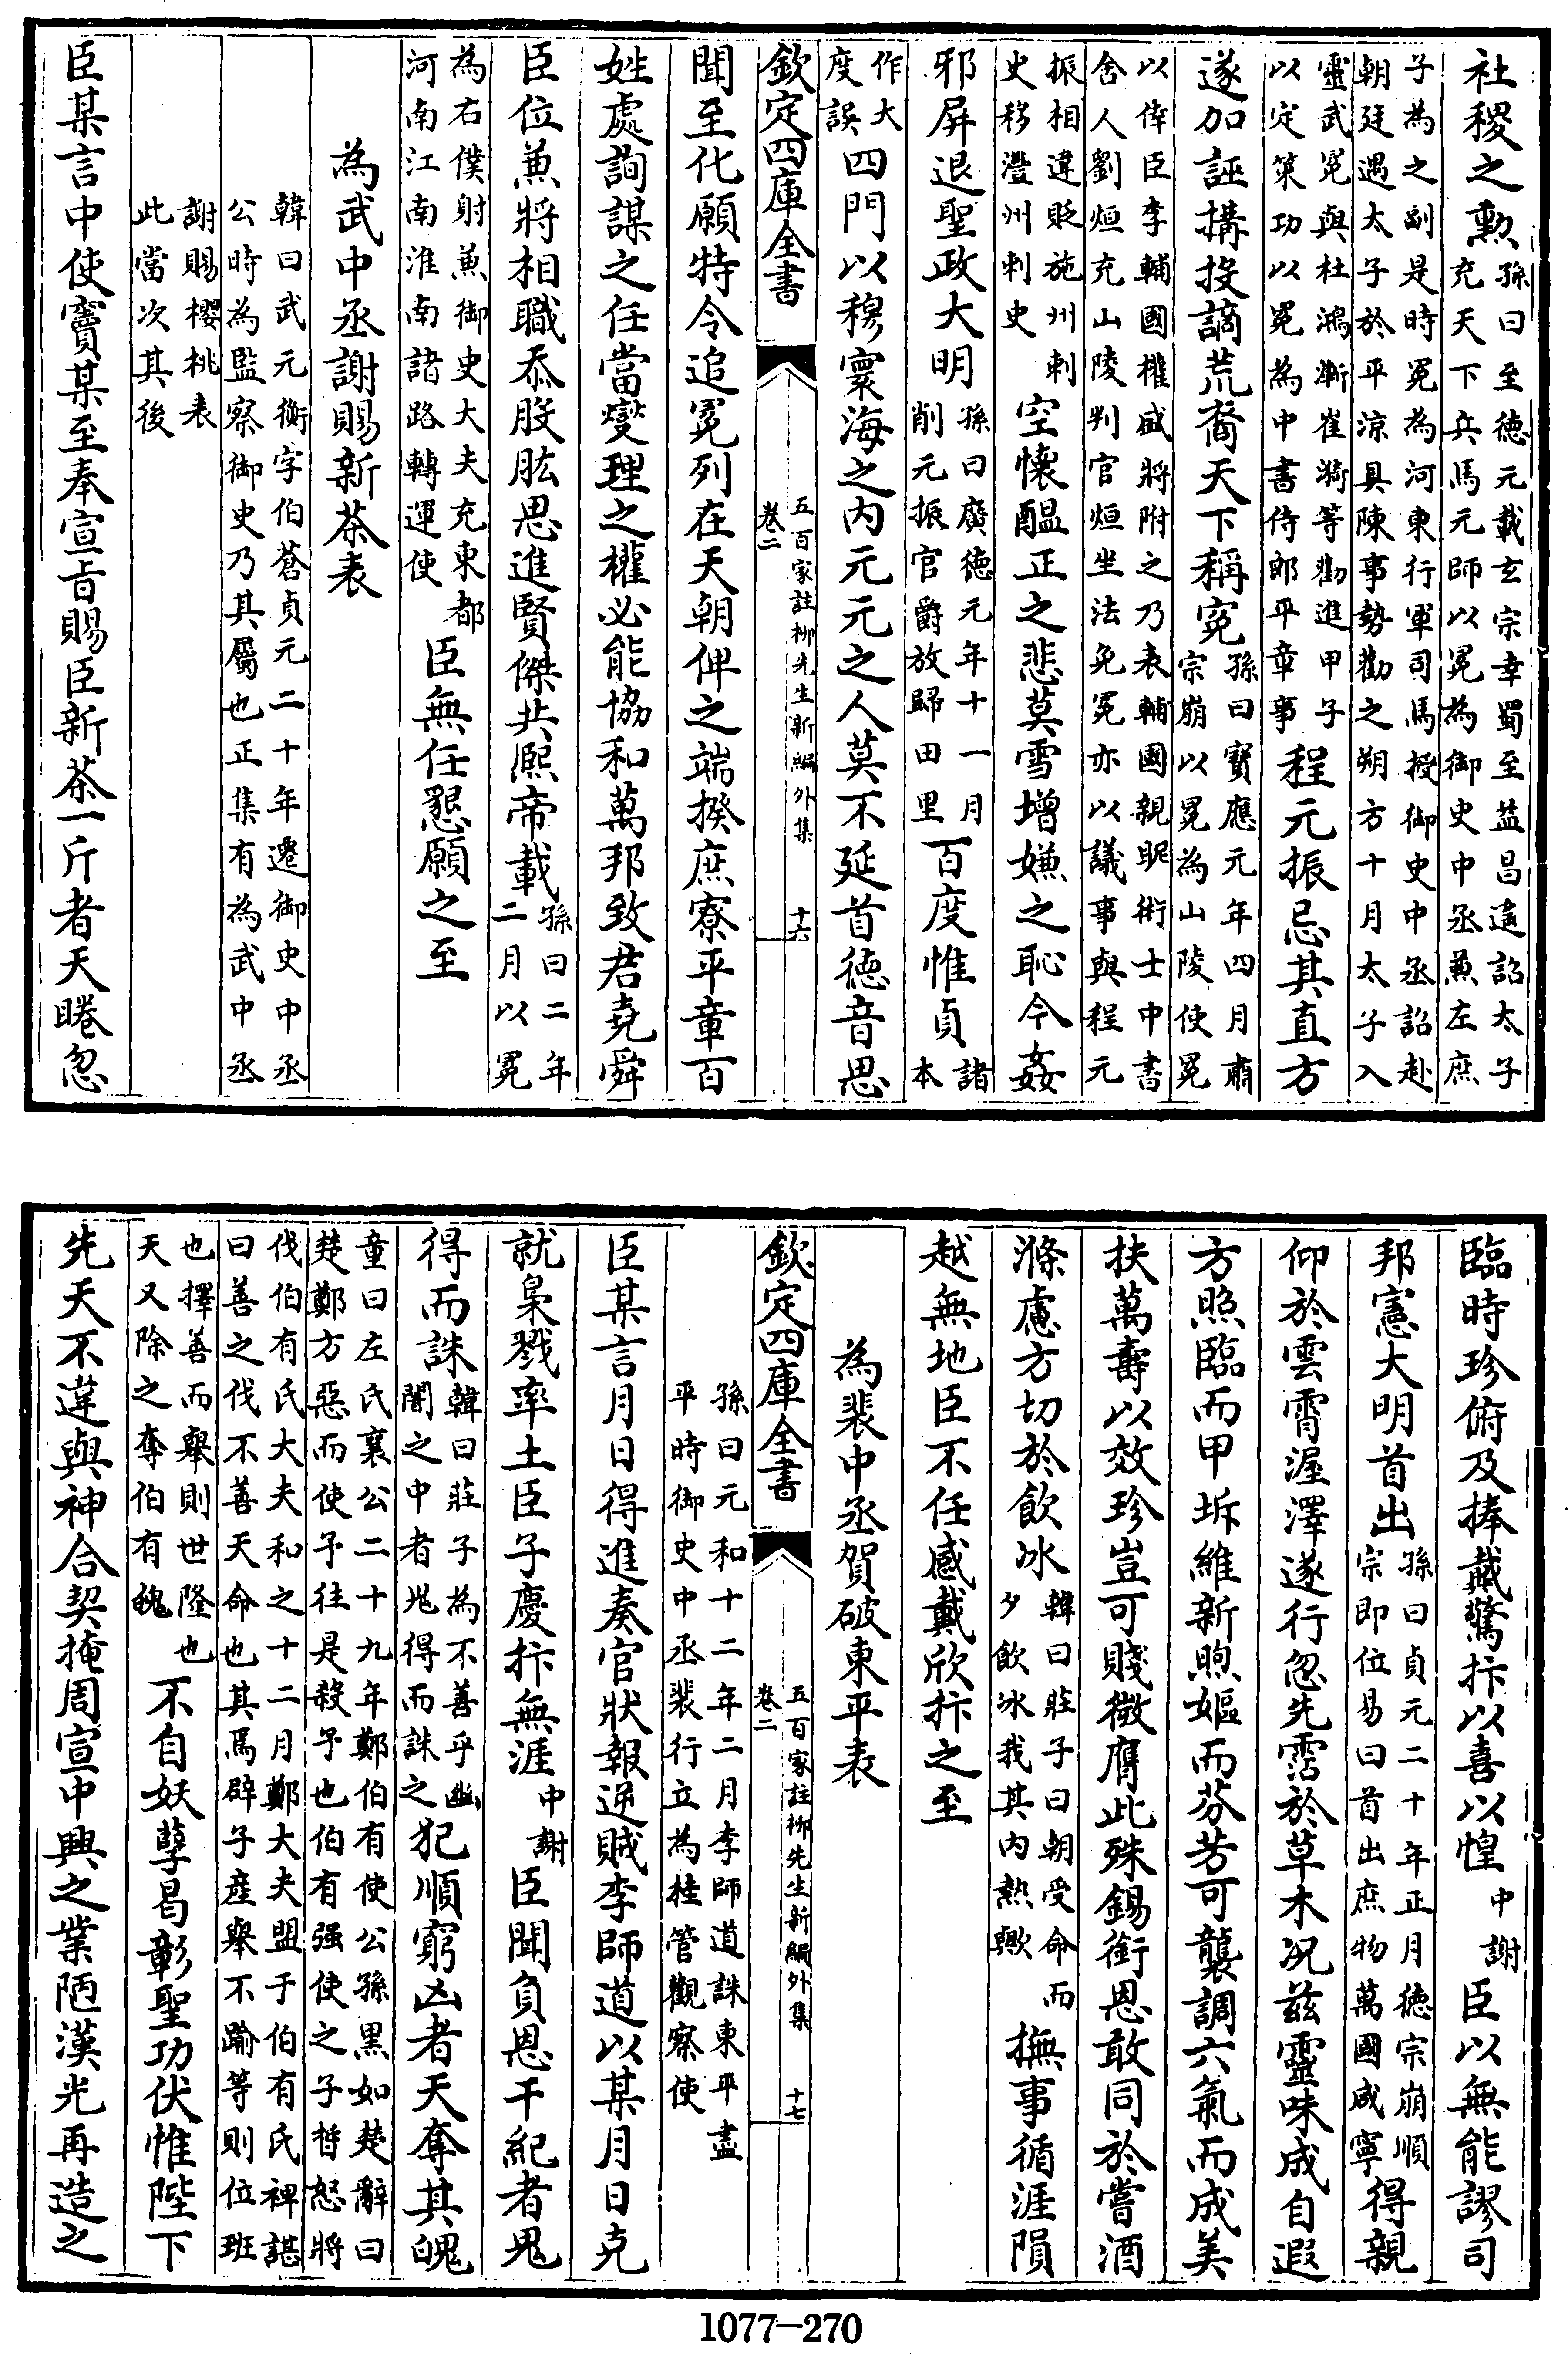 社稷之勲孫曰至徳元載玄宗幸蜀至益昌遠詔太子充天下兵馬元師以冕為御史中丞兼左庶
子為之副是時冕為河東行軍司馬授御史中丞詔赴朝廷遇太子於平涼具陳事勢勸之朔方十月太子入
靈武冕與杜鴻漸崔漪等勸進甲子以定策功以冕為中書侍郎平章事程元振忌其直方
遂加誣搆投謫荒裔天下稱寃孫曰寳應元年四月肅宗崩以冕為山陵使冕
以倖臣李輔國權盛將附之乃表輔國親昵術士中書舍人劉烜充山陵判官烜坐法免冕亦以議事與程元
振相違貶施州刺史移灃州刺史空懷醖正之悲莫雪增嫌之恥今姦
邪屏退聖政大明孫曰廣徳元年十一月削元振官爵放歸田里百度惟貞諸本
作大度誤四門以穆寰海之内元元之人莫不延首徳音思
欽定四庫全書
五百家註柳先生新編外集
卷二
十六
聞至化願特令追冕列在天朝俾之端揆庶寮平章百
姓處詢謀之任當燮理之權必能協和萬邦致君堯舜
臣位兼將相職忝股肱思進賢傑共熈帝載孫曰二年二月以冕
為右僕射兼御史大夫充東都河南江南淮南諸路轉運使臣無任懇願之至
為武中丞謝賜新茶表
韓曰武元衡字伯蒼貞元二十年遷御史中丞公時為監察御史乃其屬也正集有為武中丞
謝賜櫻桃表此當次其後
臣某言中使竇某至奉宣㫖賜臣新茶一斤者天睠忽
臨時珍俯及捧戴驚抃以喜以惶中謝臣以無能謬司
邦憲大明首出孫曰貞元二十年正月徳宗崩順宗即位易曰首出庶物萬國咸寧得親
仰於雲霄渥澤遂行忽先霑於草木况兹靈味成自遐
方照臨而甲坼維新煦嫗而芬芳可襲調六氣而成美
扶萬壽以效珍豈可賤微膺此殊錫銜恩敢同於嘗酒
滌慮方切於飲冰韓曰莊子曰朝受命而夕飲冰我其内熱歟撫事循涯隕
越無地臣不任感戴欣抃之至
為裴中丞賀破東平表
欽定四庫全書
五百家註柳先生新編外集
卷二
十七
孫曰元和十二年二月李師道誅東平盡平時御史中丞裴行立為桂管觀察使
臣某言月日得進奏官狀報逆賊李師道以某月日克
就梟戮率土臣子慶抃無涯中謝臣聞負恩干紀者鬼
得而誅韓曰莊子為不善乎幽闇之中者鬼得而誅之犯順窮凶者天奪其魄
童曰左氏襄公二十九年鄭伯有使公孫黑如楚辭曰楚鄭方惡而使予往是殺予也伯有强使之子晳怒將
伐伯有氏大夫和之十二月鄭大夫盟于伯有氏裨諶曰善之伐不善天命也其焉辟子產舉不踰等則位班
也擇善而舉則世隆也天又除之奪伯有魄不自妖孽曷彰聖功伏惟陛下
先天不違與神合契掩周宣中興之業陋漢光再造之
1077—270